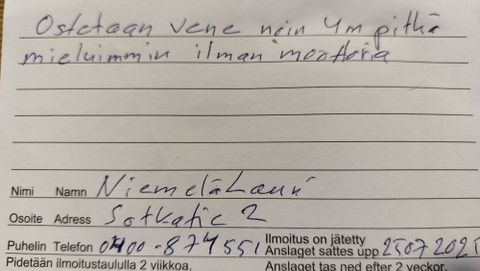 Ostetaan vene noin 4m pitkä
mieluimmin ilman moottoria
Nimi Namn Niemelä Lauri
Osoite Adress Sotkatie 2
Puhelin Telefon 0400-874551 Ilmoitus on jätetty
Anslaget sattes upp 25.07.2021
Pidetään ilmoitustaululla 2 viikkoa. Anslaget tas ned efter 2 veckor.